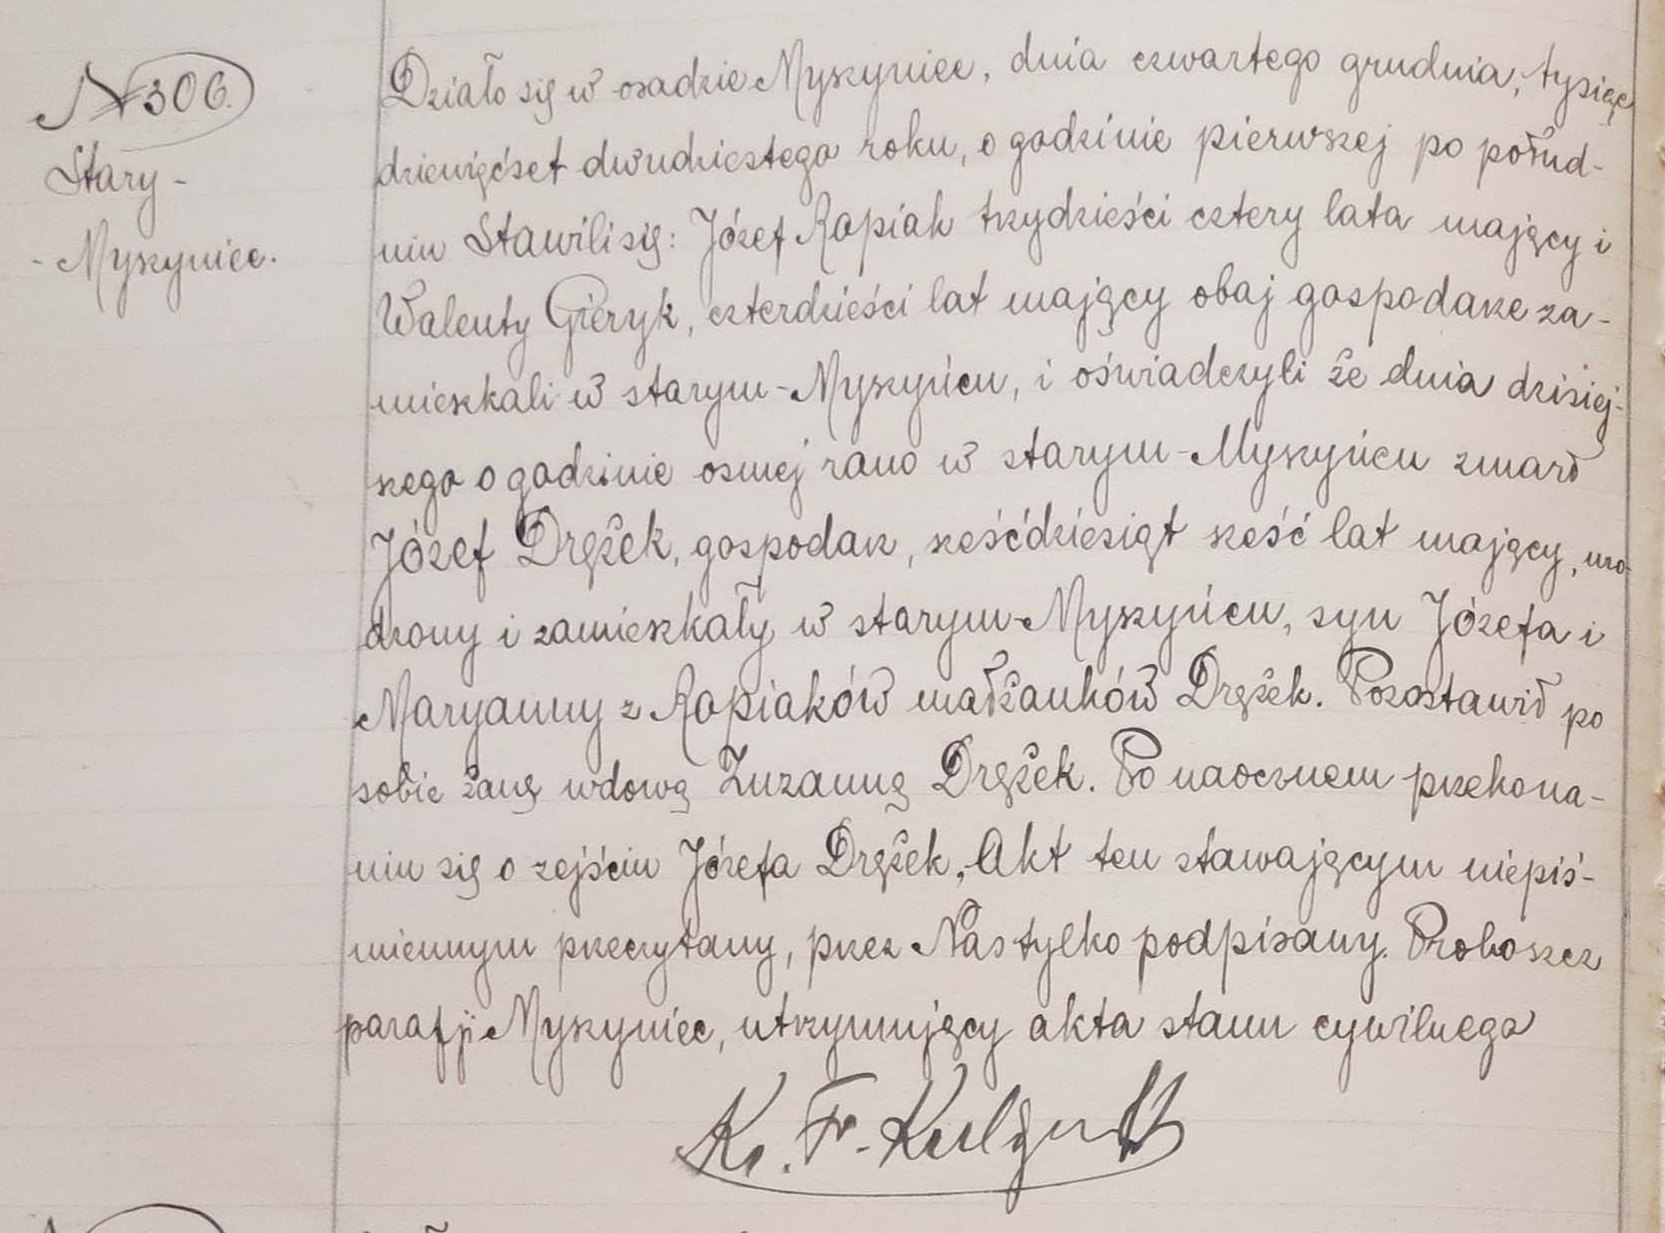 N 306.
Stary-
-Myszyniec.
Działo się w osadzie Myszyniec, dnia czwartego grudnia, tysiąc
dziewięćset dwudziestego roku, o godzinie pierwszej po połud-
niu Stawili się: Józef Ropiak trzydzieści cztery lata mający i
Walenty Gieryk, czterdzieści lat mający obaj gospodarze za-
mieszkali w starym-Myszyńcu, i oświadczyli że dnia dzisiej-
szego o godzinie osmej rano w starym-Myszyńcu zmarł
Józef Drężek, gospodarz, sześćdziesiąt sześć lat mający, uro-
dzony i zamieszkały w starym-Myszyńcu, syn Józefa i
Maryanny z Ropiaków małżonków Drężek. Pozostawił po
sobie żonę wdowę Zuzannę Drężek. Po naocznem przekona-
niu się o zejściu Józefa Drężek, Akt ten stawającym niepiś-
miennym przeczytany, przez Nas tylko podpisany. Proboszcz
parafji Myszyniec, utrzymujący akta stanu cywilnego
Ks. Fr.